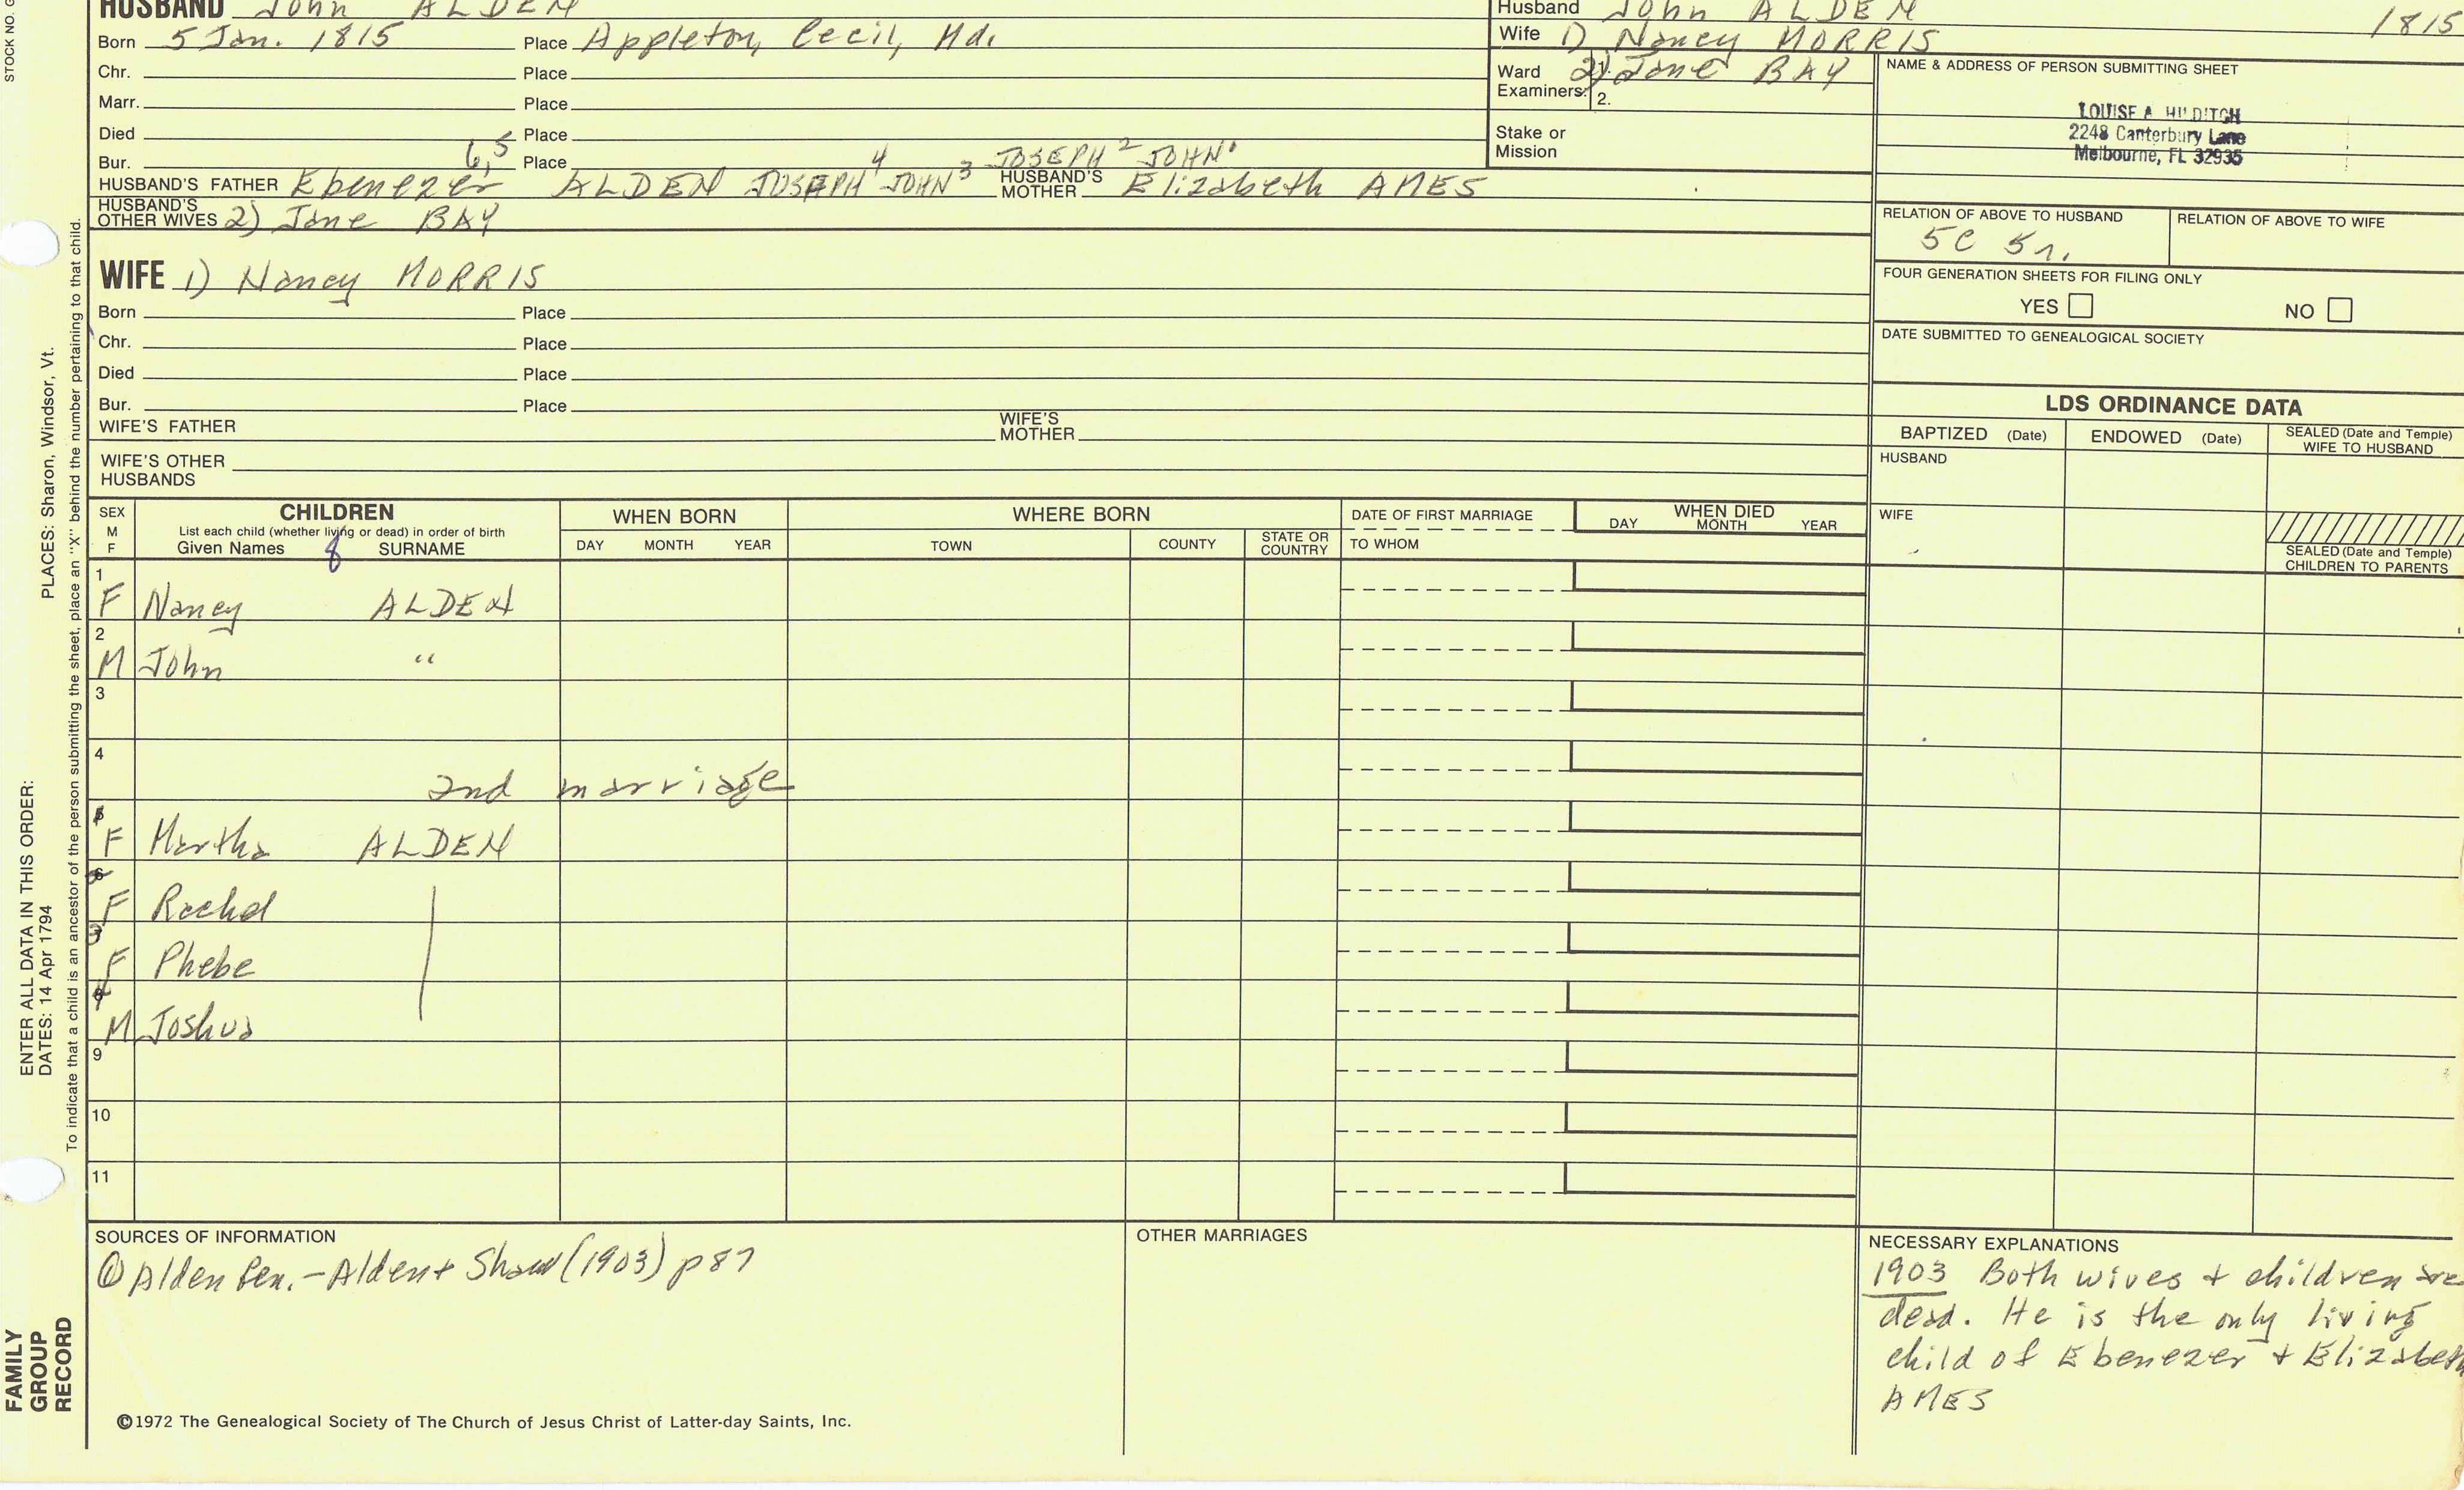 HUSBAND John ALDEN
Born 5 Jan. 1815 Place Appleton, Cecil, Md.
Chr. Place
Marr. Place
Died Place
Bur. Place
6,5 4 3 JOSEPH 2 JOHN 1
HUSBAND'S FATHER Ebenezer ALDEN JOSEPH JOHN HUSBAND'S MOTHER Elizabeth AMES
HUSBAND'S OTHER WIVES 2) Jane BAY
Husband John ALDEN 1815
Wife 1) Nancy MORRIS
Ward Examiners: 1. 2) Jane BAY
2.
Stake or Mission
NAME & ADDRESS OF PERSON SUBMITTING SHEET
LOUISE A. HILDITCH
2248 Canterbury Lane
Melbourne, FL 32935
RELATION OF ABOVE TO HUSBAND RELATION OF ABOVE TO WIFE
5C 5r.
FOUR GENERATION SHEETS FOR FILING ONLY
YES NO
DATE SUBMITTED TO GENEALOGICAL SOCIETY
WIFE 1) Nancy MORRIS
Born Place
Chr. Place
Died Place
Bur. Place
WIFE'S FATHER WIFE'S MOTHER
WIFE'S OTHER HUSBANDS
LDS ORDINANCE DATA
BAPTIZED (Date) ENDOWED (Date) SEALED (Date and Temple) WIFE TO HUSBAND
HUSBAND
WIFE
SEALED (Date and Temple) CHILDREN TO PARENTS
SEX M F
CHILDREN
List each child (whether living or dead) in order of birth
Given Names SURNAME
8
WHEN BORN
DAY MONTH YEAR
WHERE BORN
TOWN COUNTY STATE OR COUNTRY
DATE OF FIRST MARRIAGE
TO WHOM
WHEN DIED
DAY MONTH YEAR
1 F Nancy ALDEN
2 M John "
3
4 2nd marriage
F Martha ALDEN
F Rachel
3 F Phebe
4 M Joshua
9
10
11
SOURCES OF INFORMATION
① Alden Gen. - Alden + Shaw (1903) p 87
OTHER MARRIAGES
NECESSARY EXPLANATIONS
1903 Both wives + children are
dead. He is the only living
child of Ebenezer + Elizabeth
AMES
©1972 The Genealogical Society of The Church of Jesus Christ of Latter-day Saints, Inc.
STOCK NO. G
ENTER ALL DATA IN THIS ORDER:
DATES: 14 Apr 1794 PLACES: Sharon, Windsor, Vt.
To indicate that a child is an ancestor of the person submitting the sheet, place an "X" behind the number pertaining to that child.
FAMILY
GROUP
RECORD